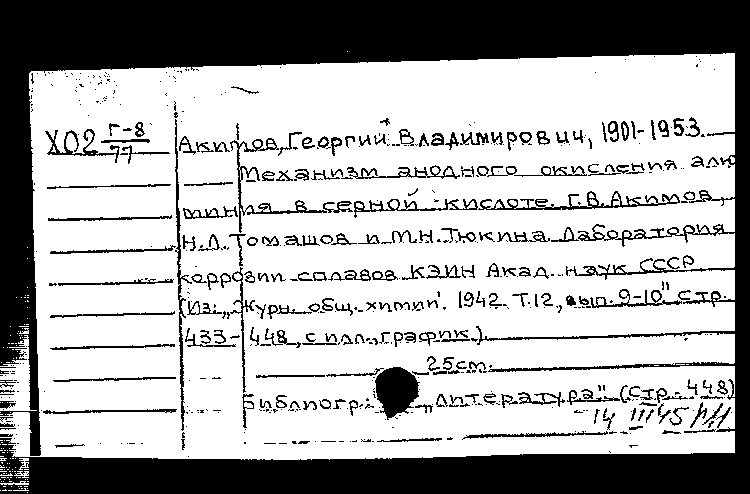 Х02 Г-8/77 Акимов, Георгий Владимирович, 1901-1953.
Механизм анодного окисления алю
миния в серной кислоте. Г.В. Акимов,
Н.Д. Томашов и М.Н. Тюкина. Лаборатория
коррозии сплавов КЭИН Акад. наук СССР
(Из: „Журн. общ. химии". 1942. Т.12, вып. 9-10" стр.
433-448, с илл., график.).
25 см.
Библиогр: „Литература" (стр. 448)
14 III 45